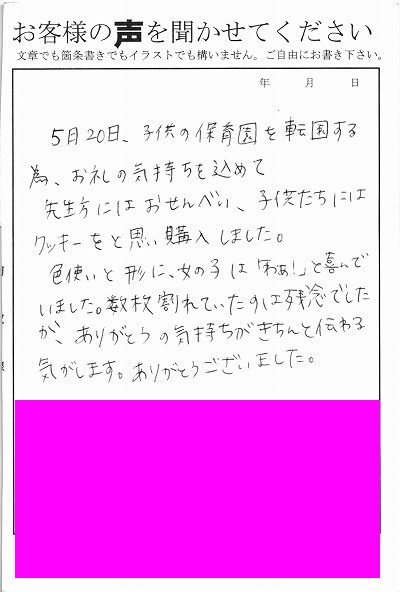 お客様の声を聞かせてください
文章でも箇条書きでもイラストでも構いません。ご自由にお書き下さい。
年 月 日
5月20日、子供の保育園を転園する
為、お礼の気持ちを込めて
先生方にはおせんべい、子供たちには
クッキーをと思い購入しました。
色使いと形に、女の子は「わぁ!」と喜んで
いました。数枚割れていたのは残念でした
が、ありがとうの気持ちがきちんと伝わる
気がします。ありがとうございました。